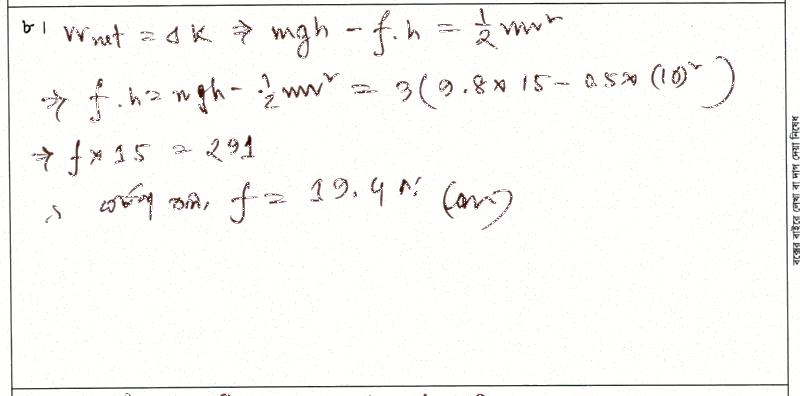 ৮। Wnet = ΔK ⇒ mgh - f.h = 1/2 mv²
⇒ f.h = mgh - 1/2 mv² = 3(9.8 × 15 - 0.5 × (10)²)
⇒ f × 15 = 291
∴ ঘর্ষণ বল, f = 19.4 N (Ans)
বক্সের বাইরে লেখা বা দাগ দেয়া নিষেধ